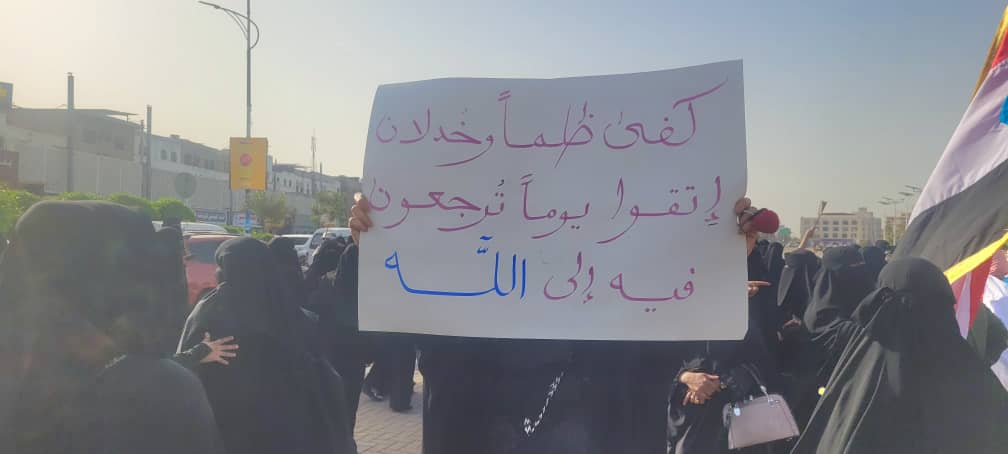 كفىٰ ظلماً وخُدلان
إتقوا يوماً تُرجعون
فيه إلى اللَّه